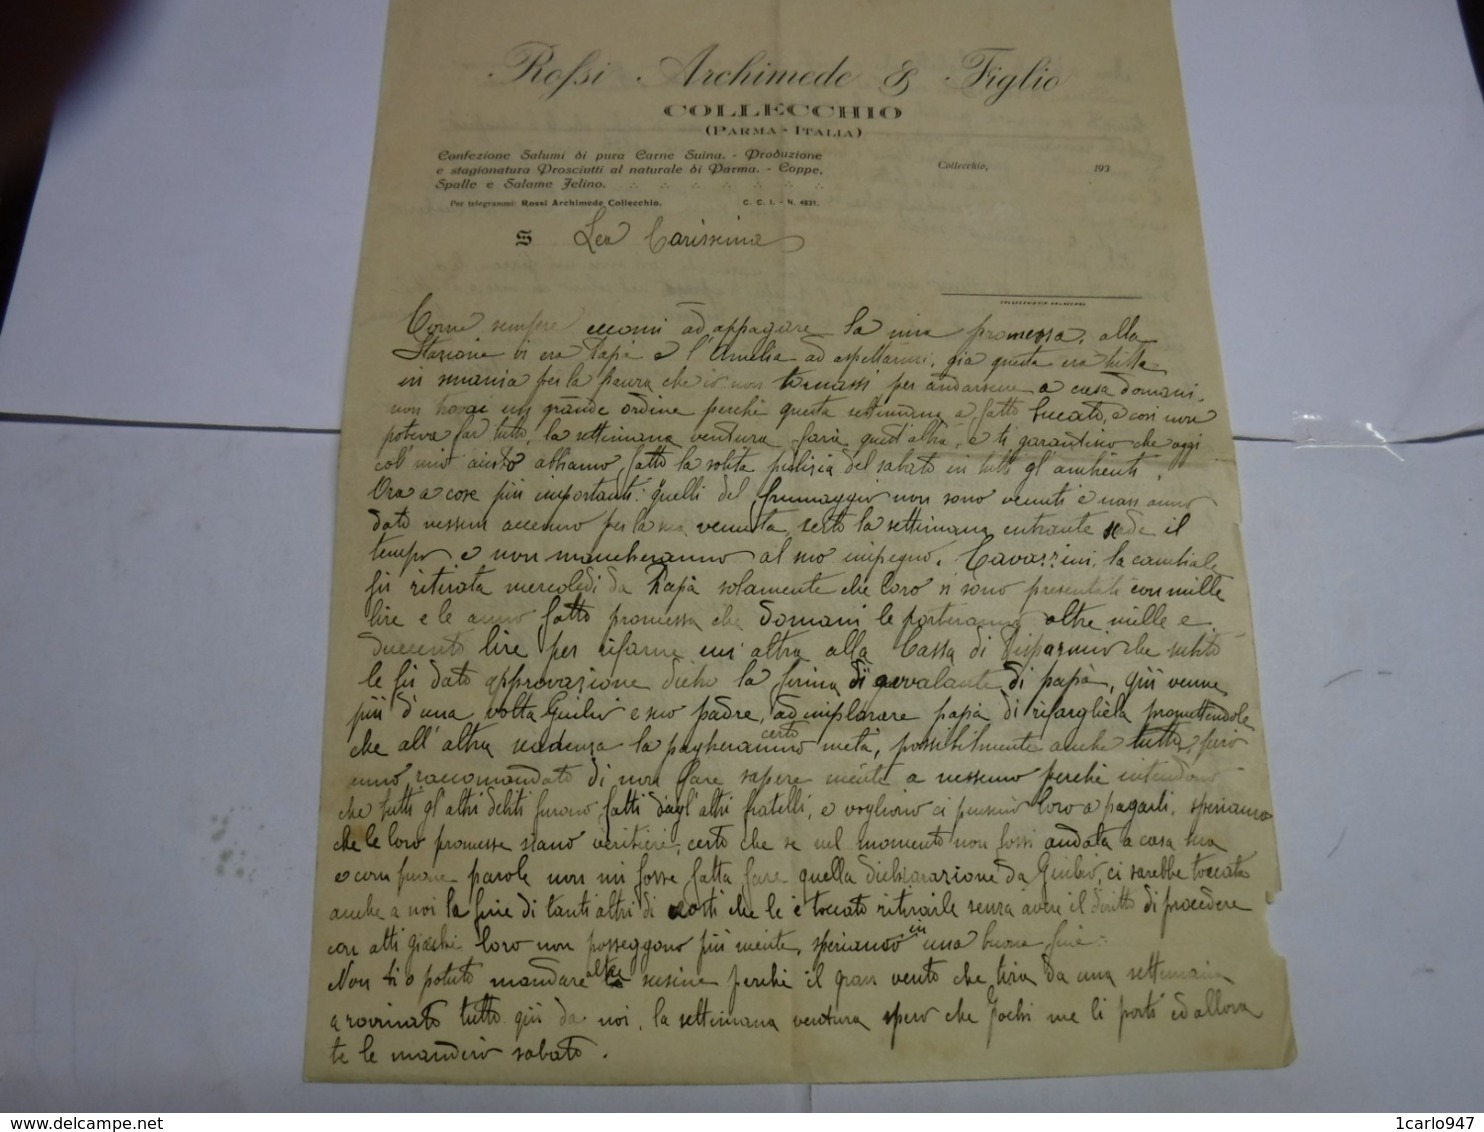 Rossi Archimede & Figlio
COLLECCHIO
(PARMA - ITALIA)
Confezione Salumi di pura Carne Suina. - Produzione
e stagionatura Prosciutti al naturale di Parma. - Coppe,
Spalle e Salame Felino.
Collecchio, 193
Per telegrammi: Rossi Archimede Collecchio. C. C. I. - N. 4831.
S Lea Carissima
Come sempre eccomi ad appagare la mia promessa, alla
Stazione vi era Papà e l'Amelia ad aspettarmi, già questa era tutta
in smania per la paura che io non tornassi per andarsene a casa domani,
non trovai un grande ordine perchè questa settimana a fatto bucato, e così non
poteva far tutto, la settimana ventura farà quest'altra, e ti garantisco che oggi
coll mio aiuto abbiamo fatto la solita pulizia del sabato in tutti gl'ambienti.
Ora a cose più importanti: quelli del frumaggio non sono venuti e non anno
dato nessun accenno per la sua venuta, certo la settimana entrante sede il
tempo e non mancheranno al suo impegno. Cavazzini, la cambiale
fu ritirata mercoledì da Papà solamente che loro si sono presentati con mille
lire e le anno fatto promessa che domani le porteranno altre mille e
duecento lire per rifarne un'altra alla Cassa di Risparmio che subito
le fu dato approvazione dietro la firma di avvalante di papà, qui venne
più d'una volta Guilio e suo padre, ad implorare papà di rifargliela promettendole
che all'altra scadenza la pagheranno certo metà, possibilmente anche tutta, però
anno raccomandato di non fare sapere niente a nessuno perchè intendono
che tutti gl'altri debiti furono fatti dagl'altri fratelli, e vogliono ci pensino loro a pagarli, speriamo
che le loro promesse siano veritiere, certo che se nel momento non fossi andata a casa sua
e con buone parole non mi fosse fatta fare quella dichiarazione da Guilio, ci sarebbe toccata
anche a noi la fine di tanti altri di costi che le è toccato ritirarle senza avere il diritto di procedere
con atti giachè loro non posseggono più niente, speriamo in una buona fine.
Non ti o potuto mandare altre susine perchè il gran vento che tira da una settimana
a rovinato tutto qui da noi, la settimana ventura spero che Pochi me li porti ed allora
te le manderò sabato.
1carlo947